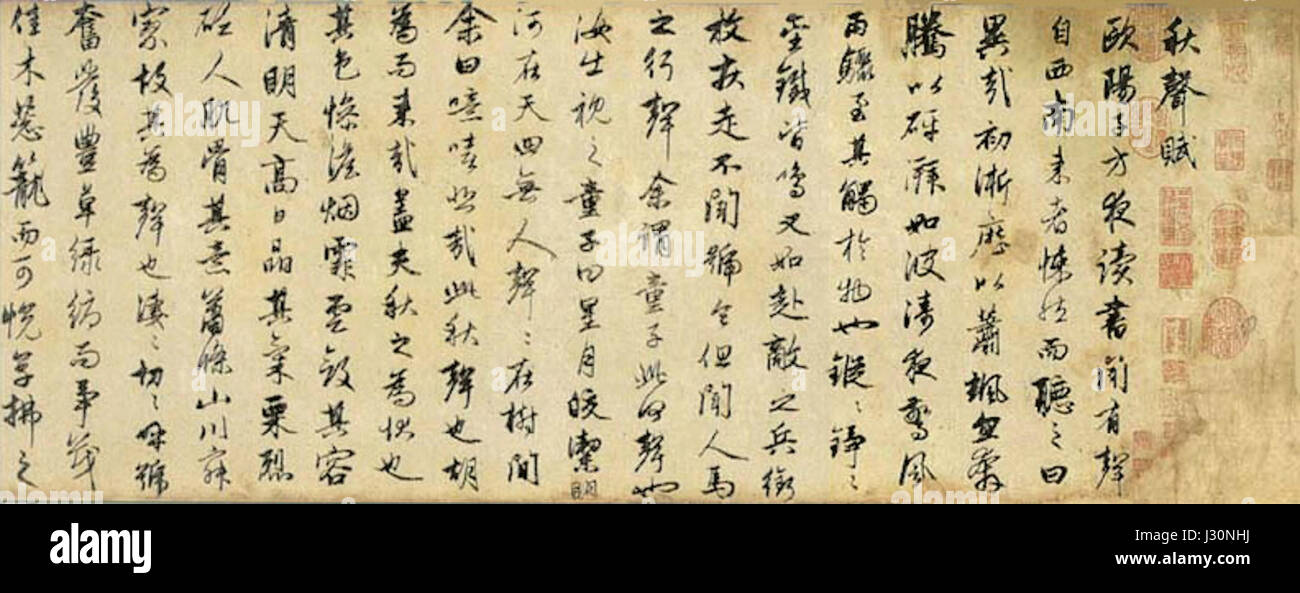 秋聲賦
歐陽子方夜读書聞有聲
自西南来者悚然而聽之曰
異哉初淅瀝以蕭颯忽奔
騰以砰湃如波濤夜驚風
雨驟至其觸於物也鏦〻錚〻
金鐵皆鳴又如赴敵之兵銜
枚疾走不聞號令但聞人馬
之行聲余謂童子此何聲也
汝出視之童子曰星月皎潔明
河在天四無人聲〻在樹間
余曰噫嘻悲哉此秋聲也胡
為而来哉蓋夫秋之為状也
其色惨澹烟霏雲斂其容
清明天高日晶其氣栗烈
砭人肌骨其意蕭條山川寂
寥故其為聲也淒〻切〻呼號
奮發豐草绿縟而爭茂
佳木葱籠而可悦草拂之
alamy
a
Image ID: J30NHJ
www.alamy.com